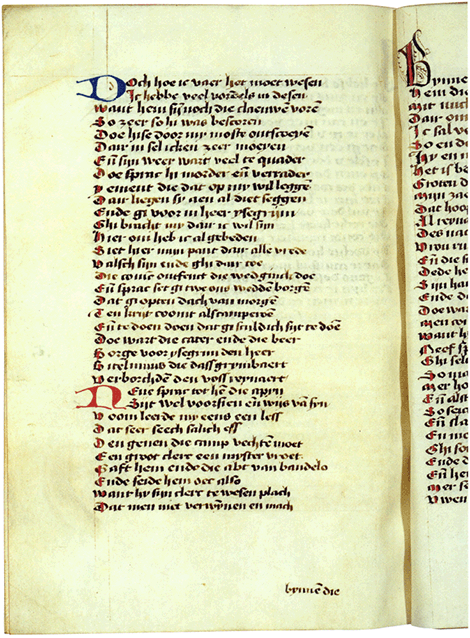 Doch hoe ic vaer het moet wesen
Ic hebbe veel vordels in desen
Want hem sijn noch die claeuwen vorē
So zeer so hi was bescoren
Doe hise door my moste ontscoeyen
Dair in sel icken zeer moeyen
Eñ sijn weer wart veel te quader
Doe sprac hi morder eñ verrader
yement die dat op my wil legge
Dair liegen sy aen al diet seggen
Ende gi voor in heer ysegrijm
Ghi bracht my dair ic wil sijn
Hier om heb ic al gebeden
Siet hier mijn pant dair alle vrede
Valsch sijn ende ghi dair toe
Die coninc ontfenct die wedginck doe
Eñ sprac set gi twe ons wedde borgē
Dat gi opten dach van morgē
Ten crijt coomt
Eñ te doen doen dat gi sculdich sijt te doē
Doe wart die cater ende die beer
Borge voor ysegrim den heer
Bitelinus die dass grymbaert
Verborchdē den voss reynaert
Ene sprac tot hē die apyn
Sijt wel voorsien eñ wijs vā syn
V oom leerde my eens een less
Dat seer seech salich ess
Den genen die camp vechtē moet
Een groot clerc een myster vroet
Gaft hem ende die abt van baudelo
Ende seide hem oec also
Want hy sijn clerc te wesen plach
Dat men niet verwynen en mach
bynnē die
Bynne
Hem die
Mit
Dair om
Ic sal
So
Hy en
Het is b
Groten d
Mijn
Dat hoo
Al reyna
Des na
Vrou ru
Eñ die
Dede he
Sijn ha
Ende d
Dat
Men
Want h
Neef
Ghi sel
So
Mer ho
Eñ alst
So sein
Eñ clau
Eñ
Ghi so
Ende d
Eñ hem
Mer se
V wen